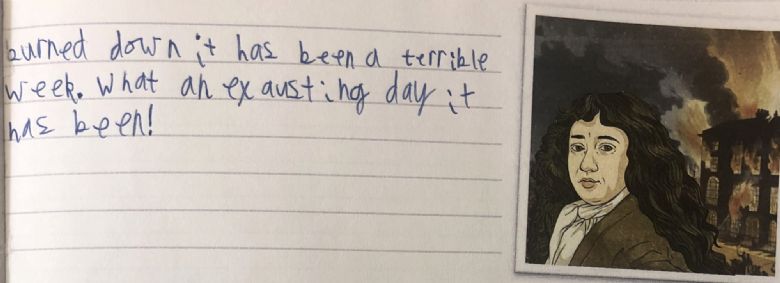 burned down it has been a terrible
week. What an exausting day it
has been!